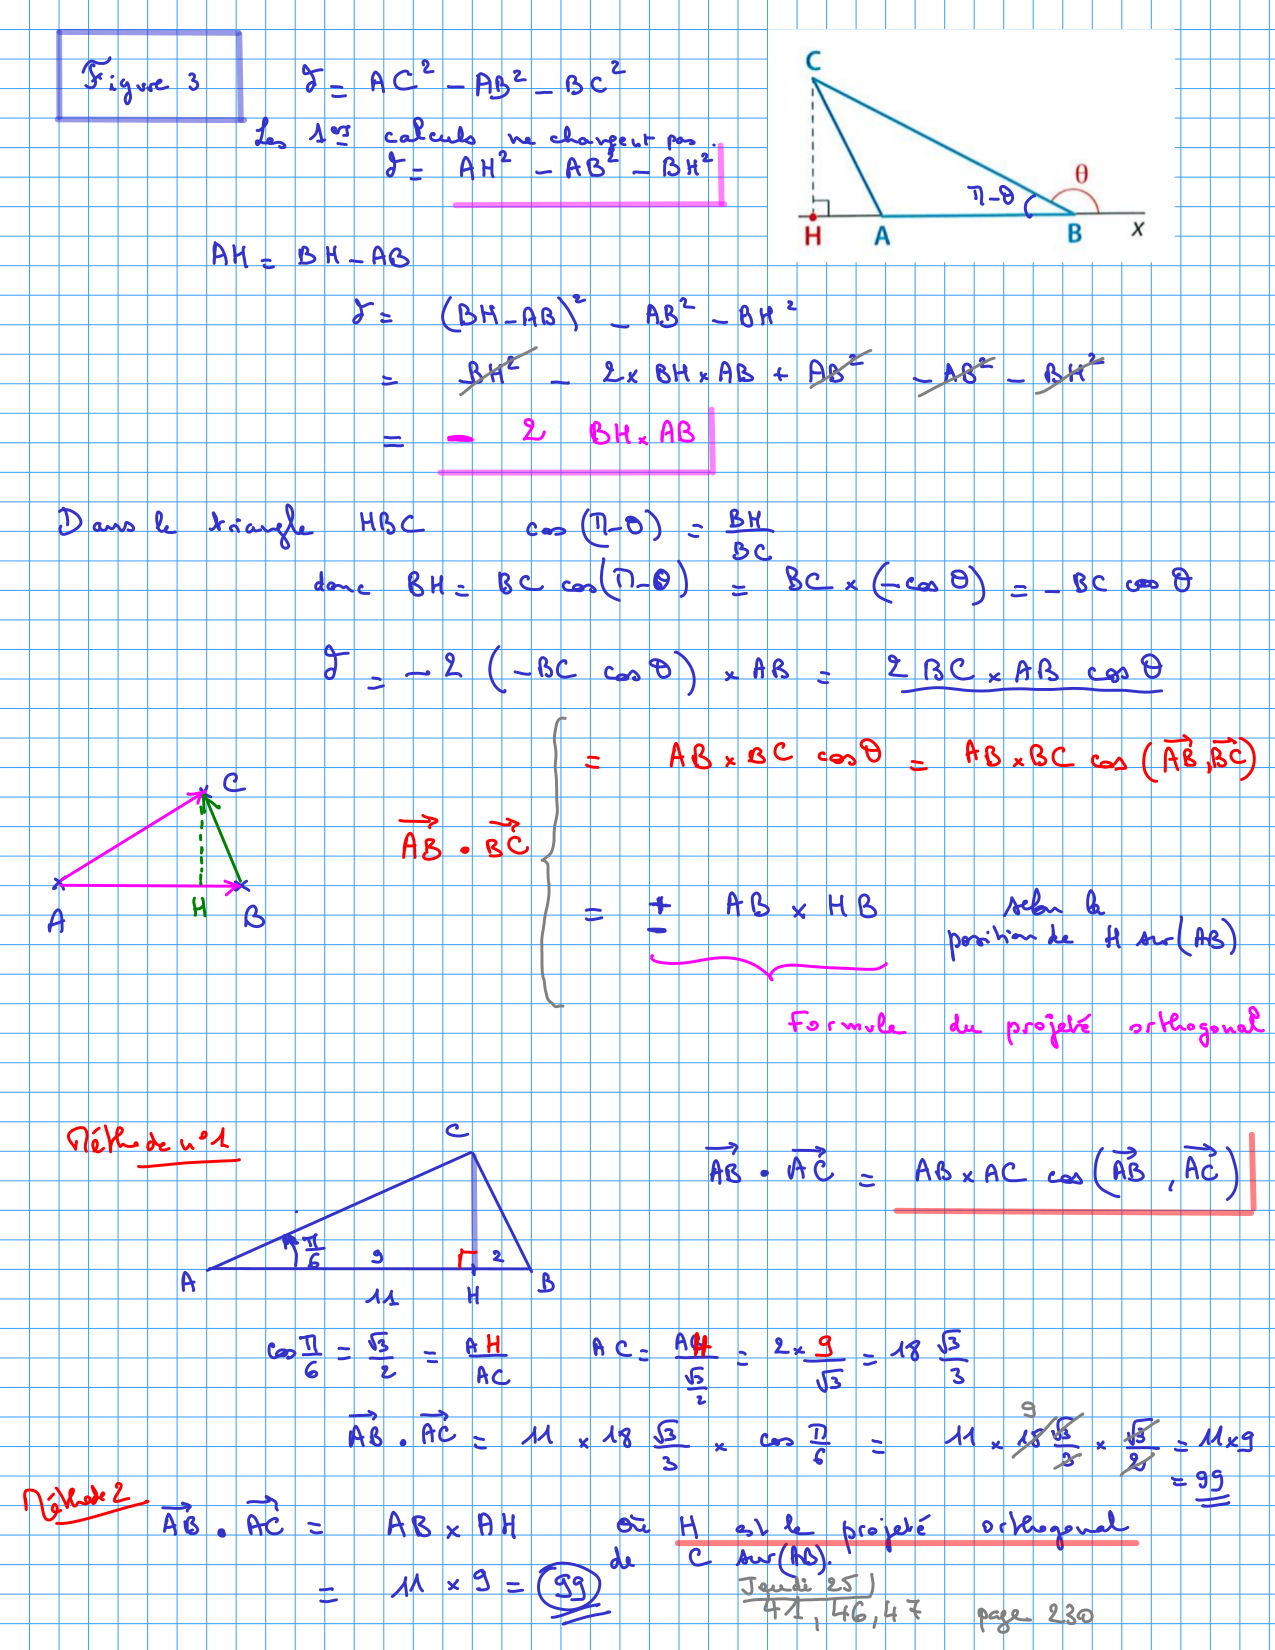 Figure 3
𝒥 = AC² - AB² - BC²
Les 1ers calculs ne changent pas.
𝒥 = AH² - AB² - BH²
C
θ
π-θ
H A B x
AH = BH - AB
𝒥 = (BH - AB)² - AB² - BH²
= BH² - 2 × BH × AB + AB² - AB² - BH²
= - 2 BH × AB
Dans le triangle HBC cos(π-θ) = BH/BC
donc BH = BC cos(π-θ) = BC × (-cos θ) = - BC cos θ
𝒥 = - 2 (-BC cos θ) × AB = 2 BC × AB cos θ
= AB × BC cos θ = AB × BC cos(AB→, BC→)
C
AB→ · BC→
A H B
= ± AB × HB selon la
position de H sur (AB)
Formule du projeté orthogonal
Méthode n°1
C
AB→ · AC→ = AB × AC cos(AB→, AC→)
π/6 9 2
A 11 H B
cos π/6 = √3/2 = AH/AC AC = AH/(√3/2) = 2 × 9/√3 = 18 √3/3
AB→ · AC→ = 11 × 18 √3/3 × cos π/6 = 11 × 18 9 √3/3 × √3/2 = 11 × 9
= 99
Méthode 2
AB→ · AC→ = AB × AH où H est le projeté orthogonal
de C sur (AB).
= 11 × 9 = 99
Jeudi 25
41, 46, 47 page 230